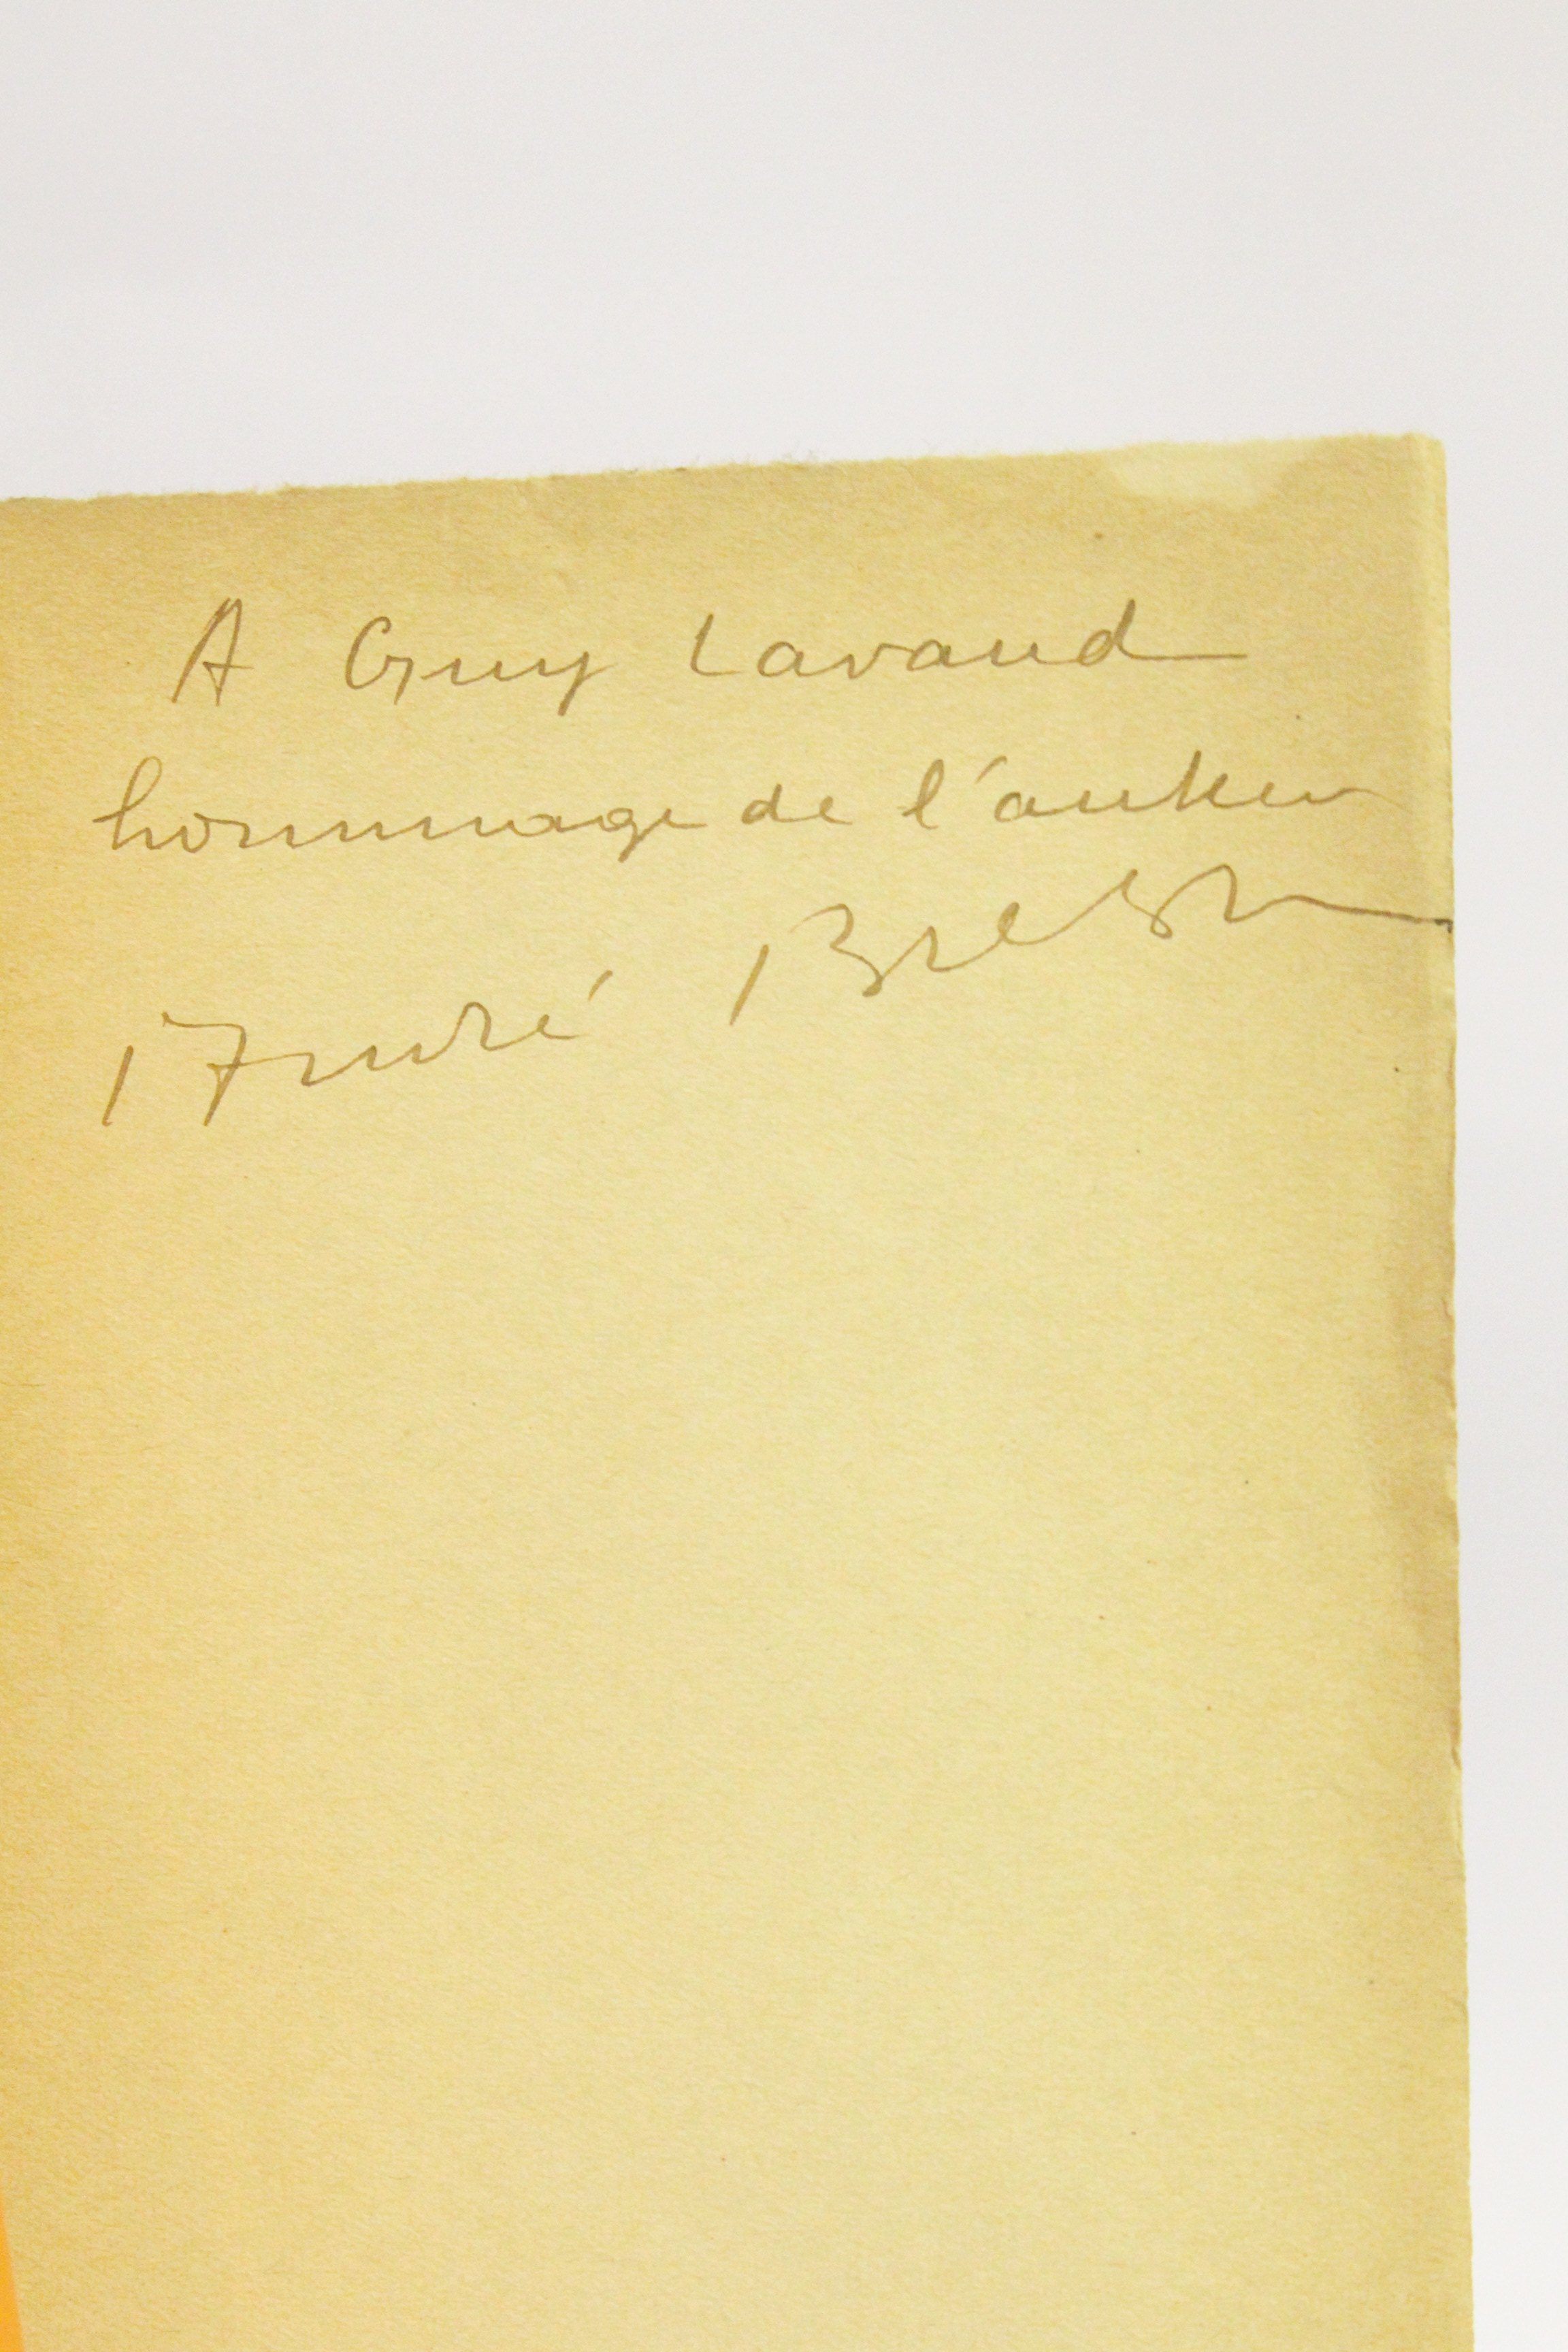 A Guy Lavaud
hommage de l'auteur
André Breton